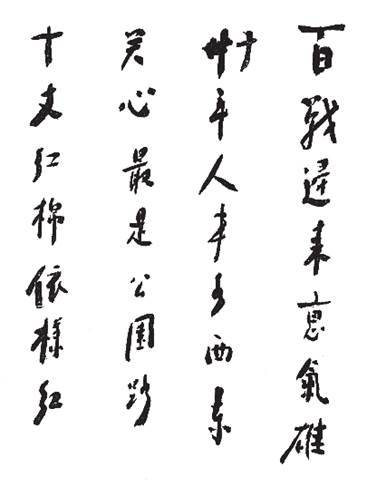 百戰歸来意氣雄
卅年人事各西東
关心最是公園路
十丈红棉依樣红